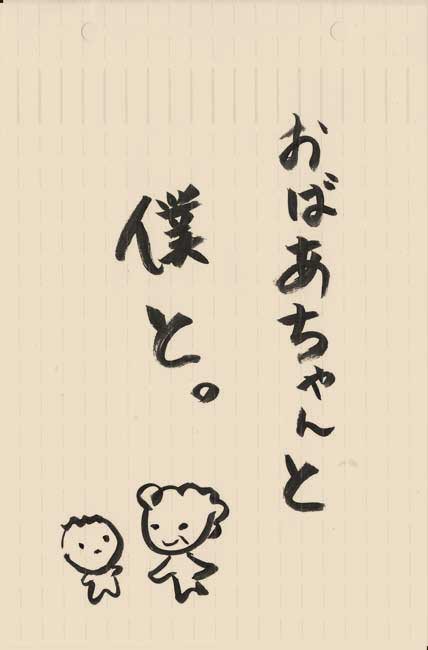 おばあちゃんと
僕と。